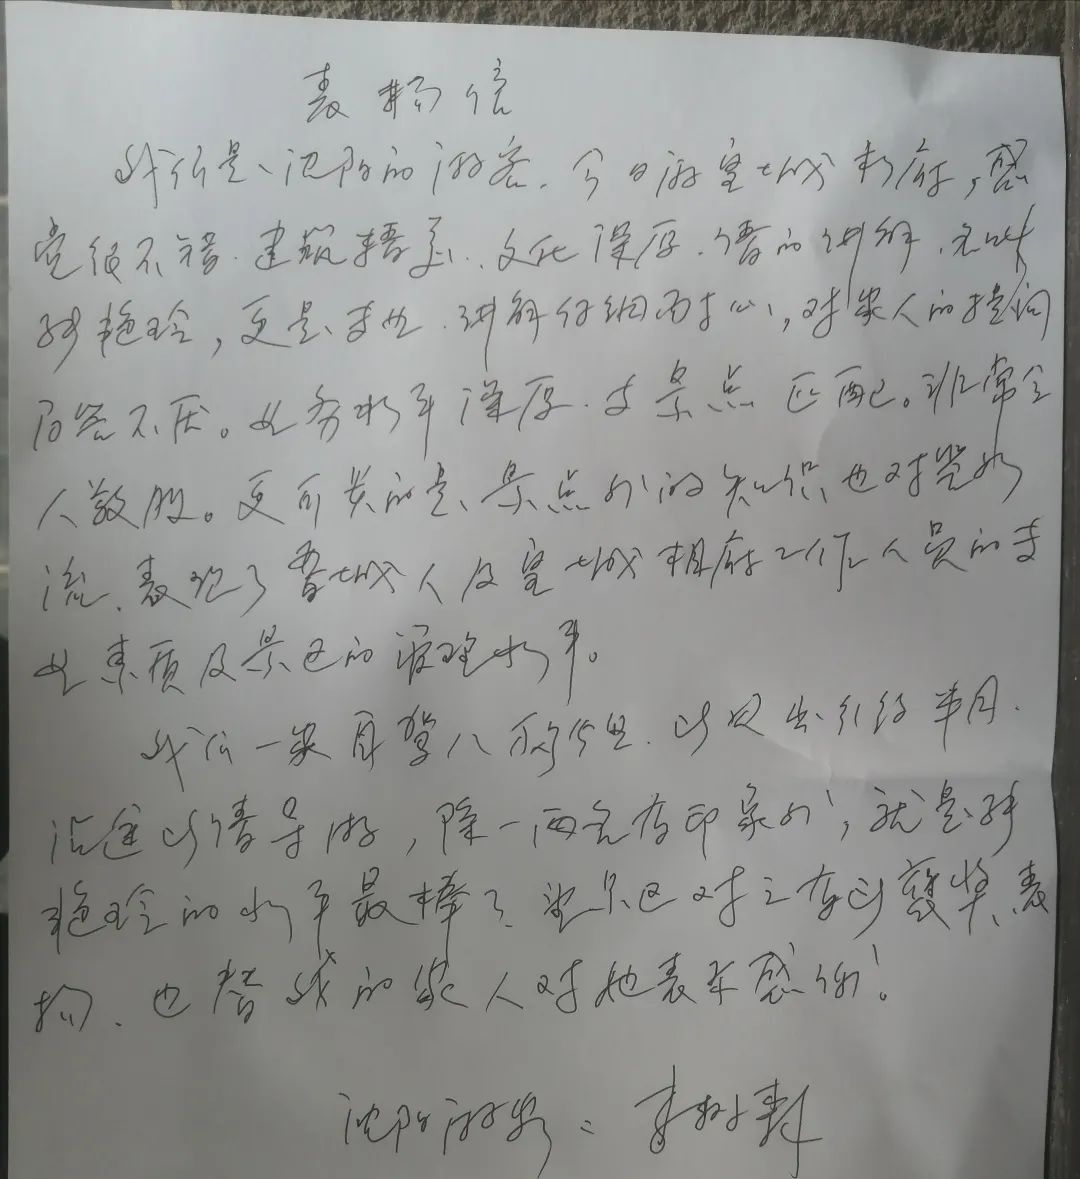 表扬信
我们是沈阳的游客.今日游皇城相府,感
觉很不错.建筑精美.文化深厚.请的讲解
艳玲,更是专业.讲解仔细而耐心,对家人的提问
百答不厌。业务水平深厚.与景点匹配。非常令
人敬服。更可贵的是、景点外的知识也对答如
流、表现了晋城人及皇城相府工作人员的专
业素质及景区的管理水平。
我们一家自驾八个省.以及出行约半月.
沿途以请导游,除一两名有印象外,就是
艳玲的水平最棒了.望景区对之有所获奖、表
扬、也替我的家人对她表示感谢!
沈阳游客:李树